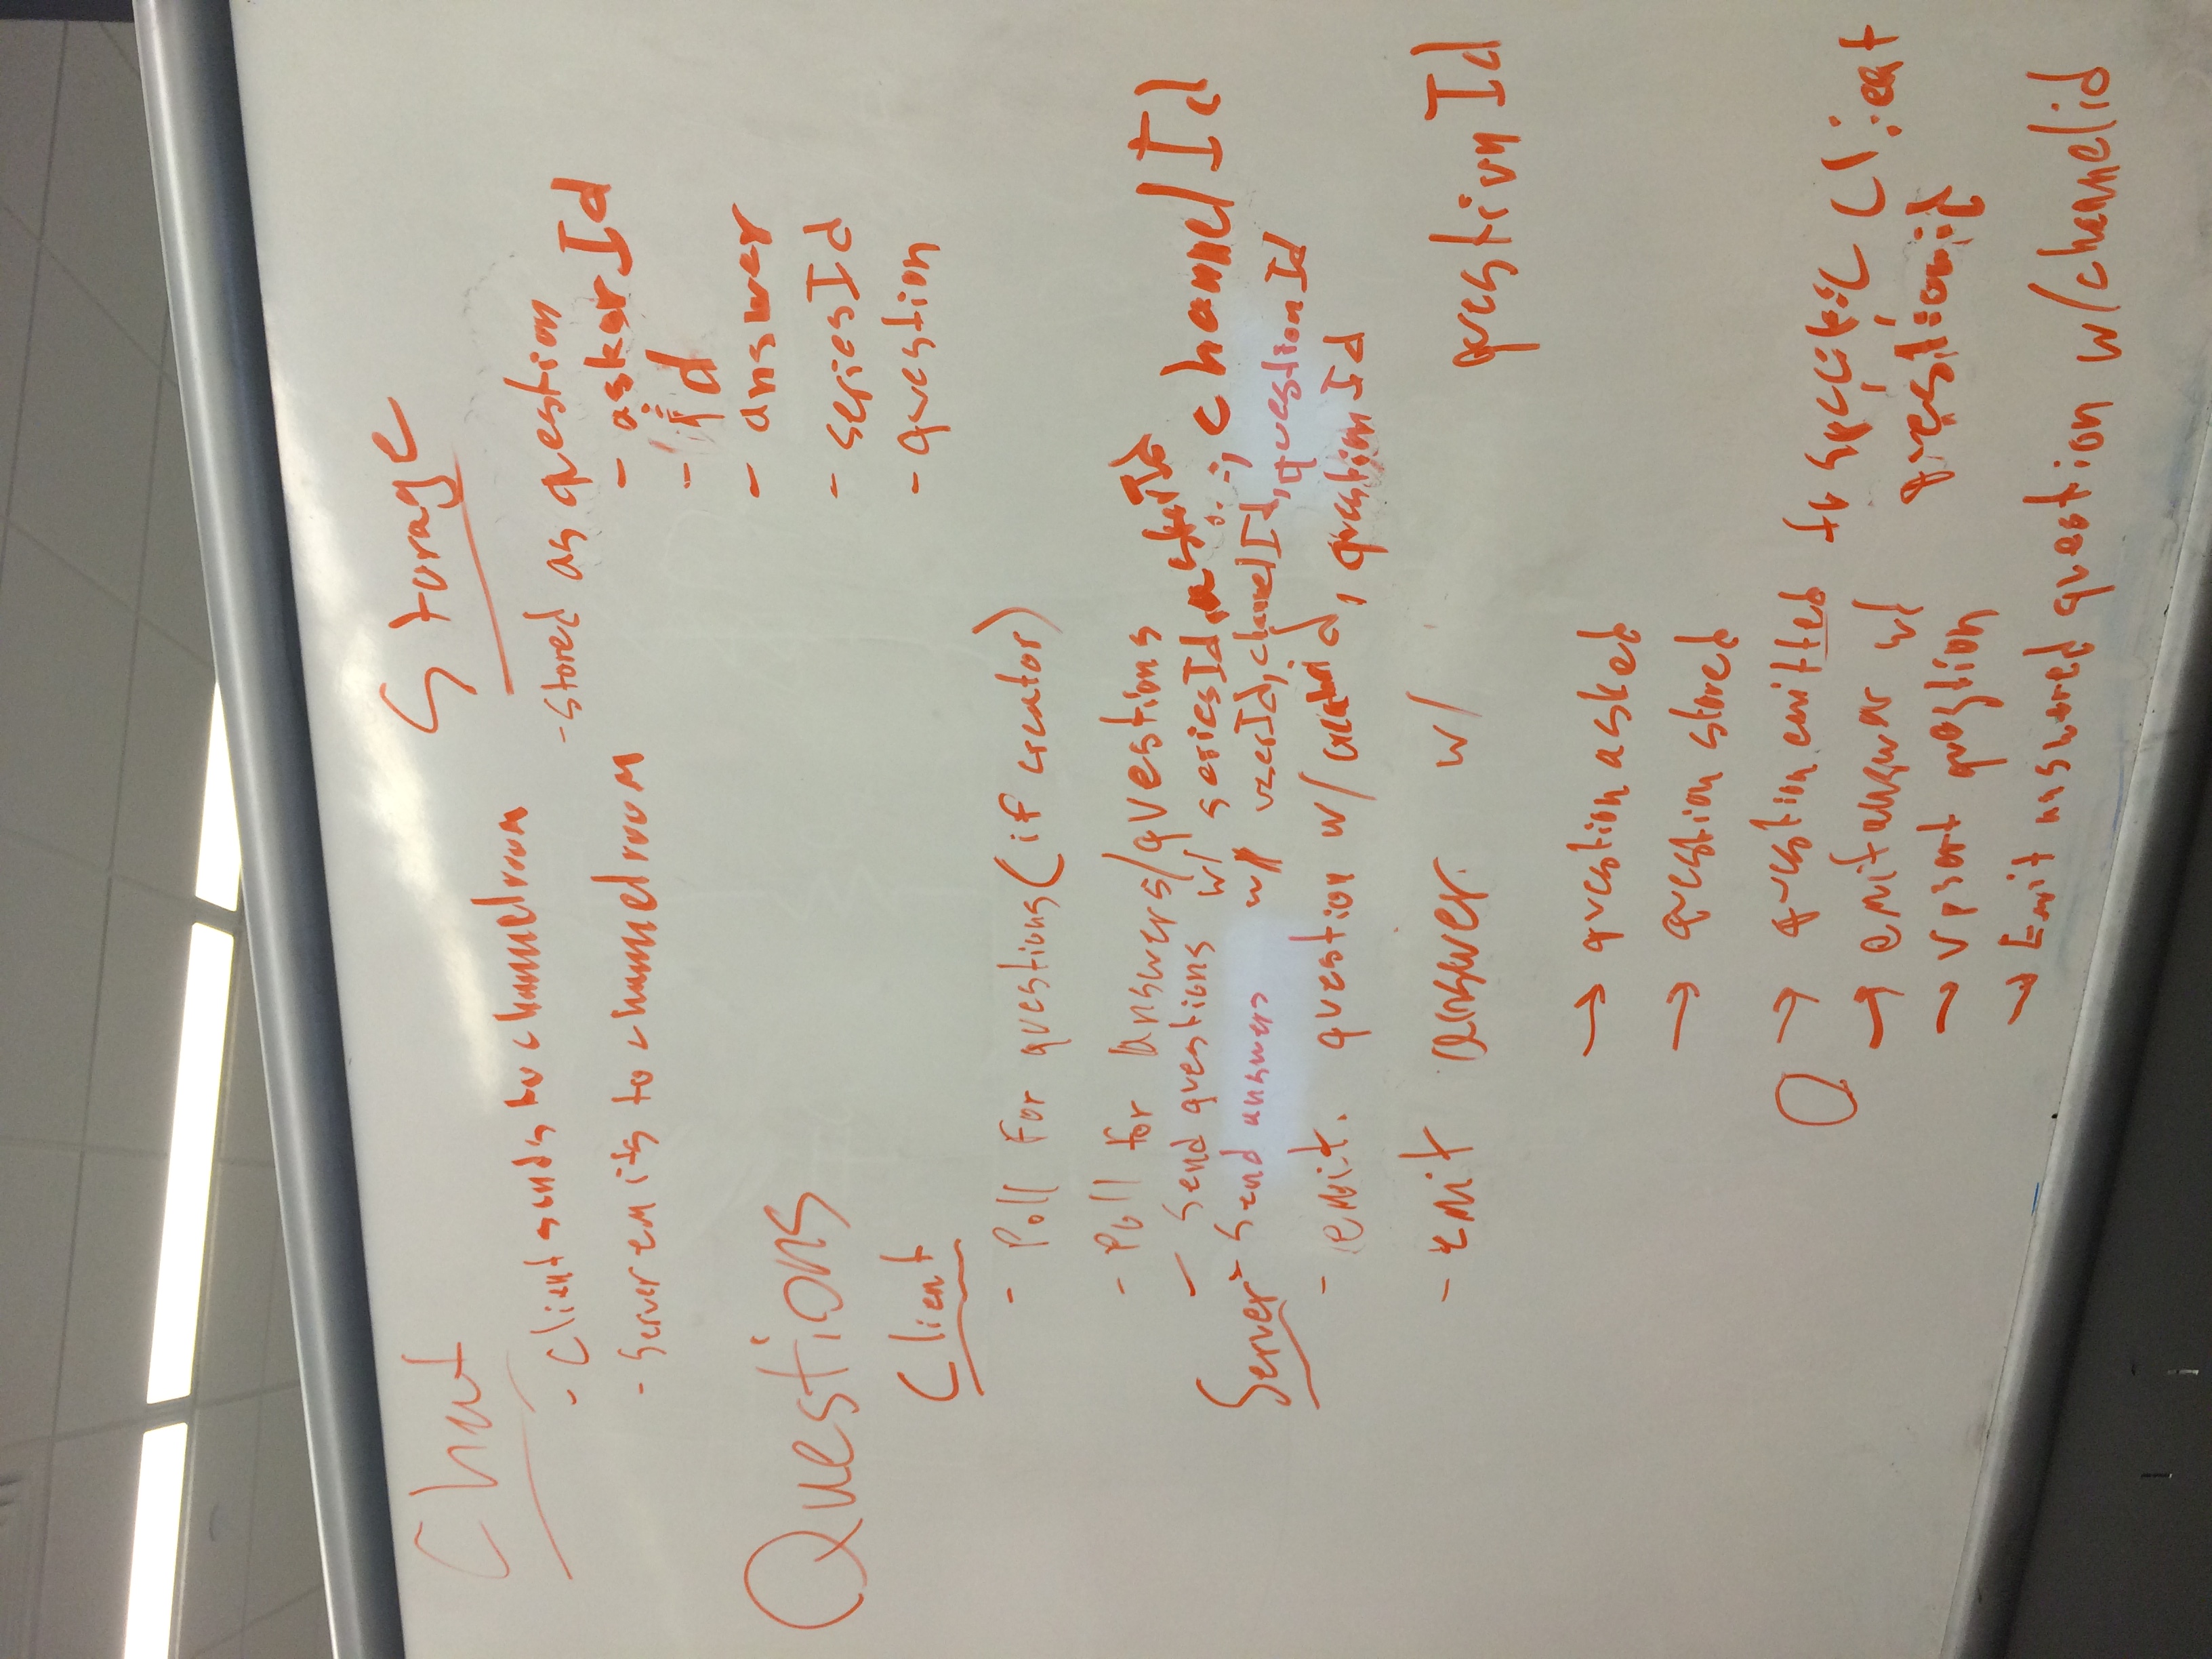 Chat
- Client sends to channel room
- Server emits to channel room
Storage
- stored as question
- askerId
- id
- answer
- seriesId
- question
Questions
Client
- Poll for questions (if creator)
- Poll for answers/questions
- Send questions w/ seriesId, askerId, channelId
- Send answers w/ userId, channelId, questionId
Server
- emit question w/ creatorid, questionId
- emit answer w/ questionId
→ question asked
→ question stored
→ question emitted to specific client
→ emit answer w/ questionid
→ upsert question
→ Emit answered question w/channelid